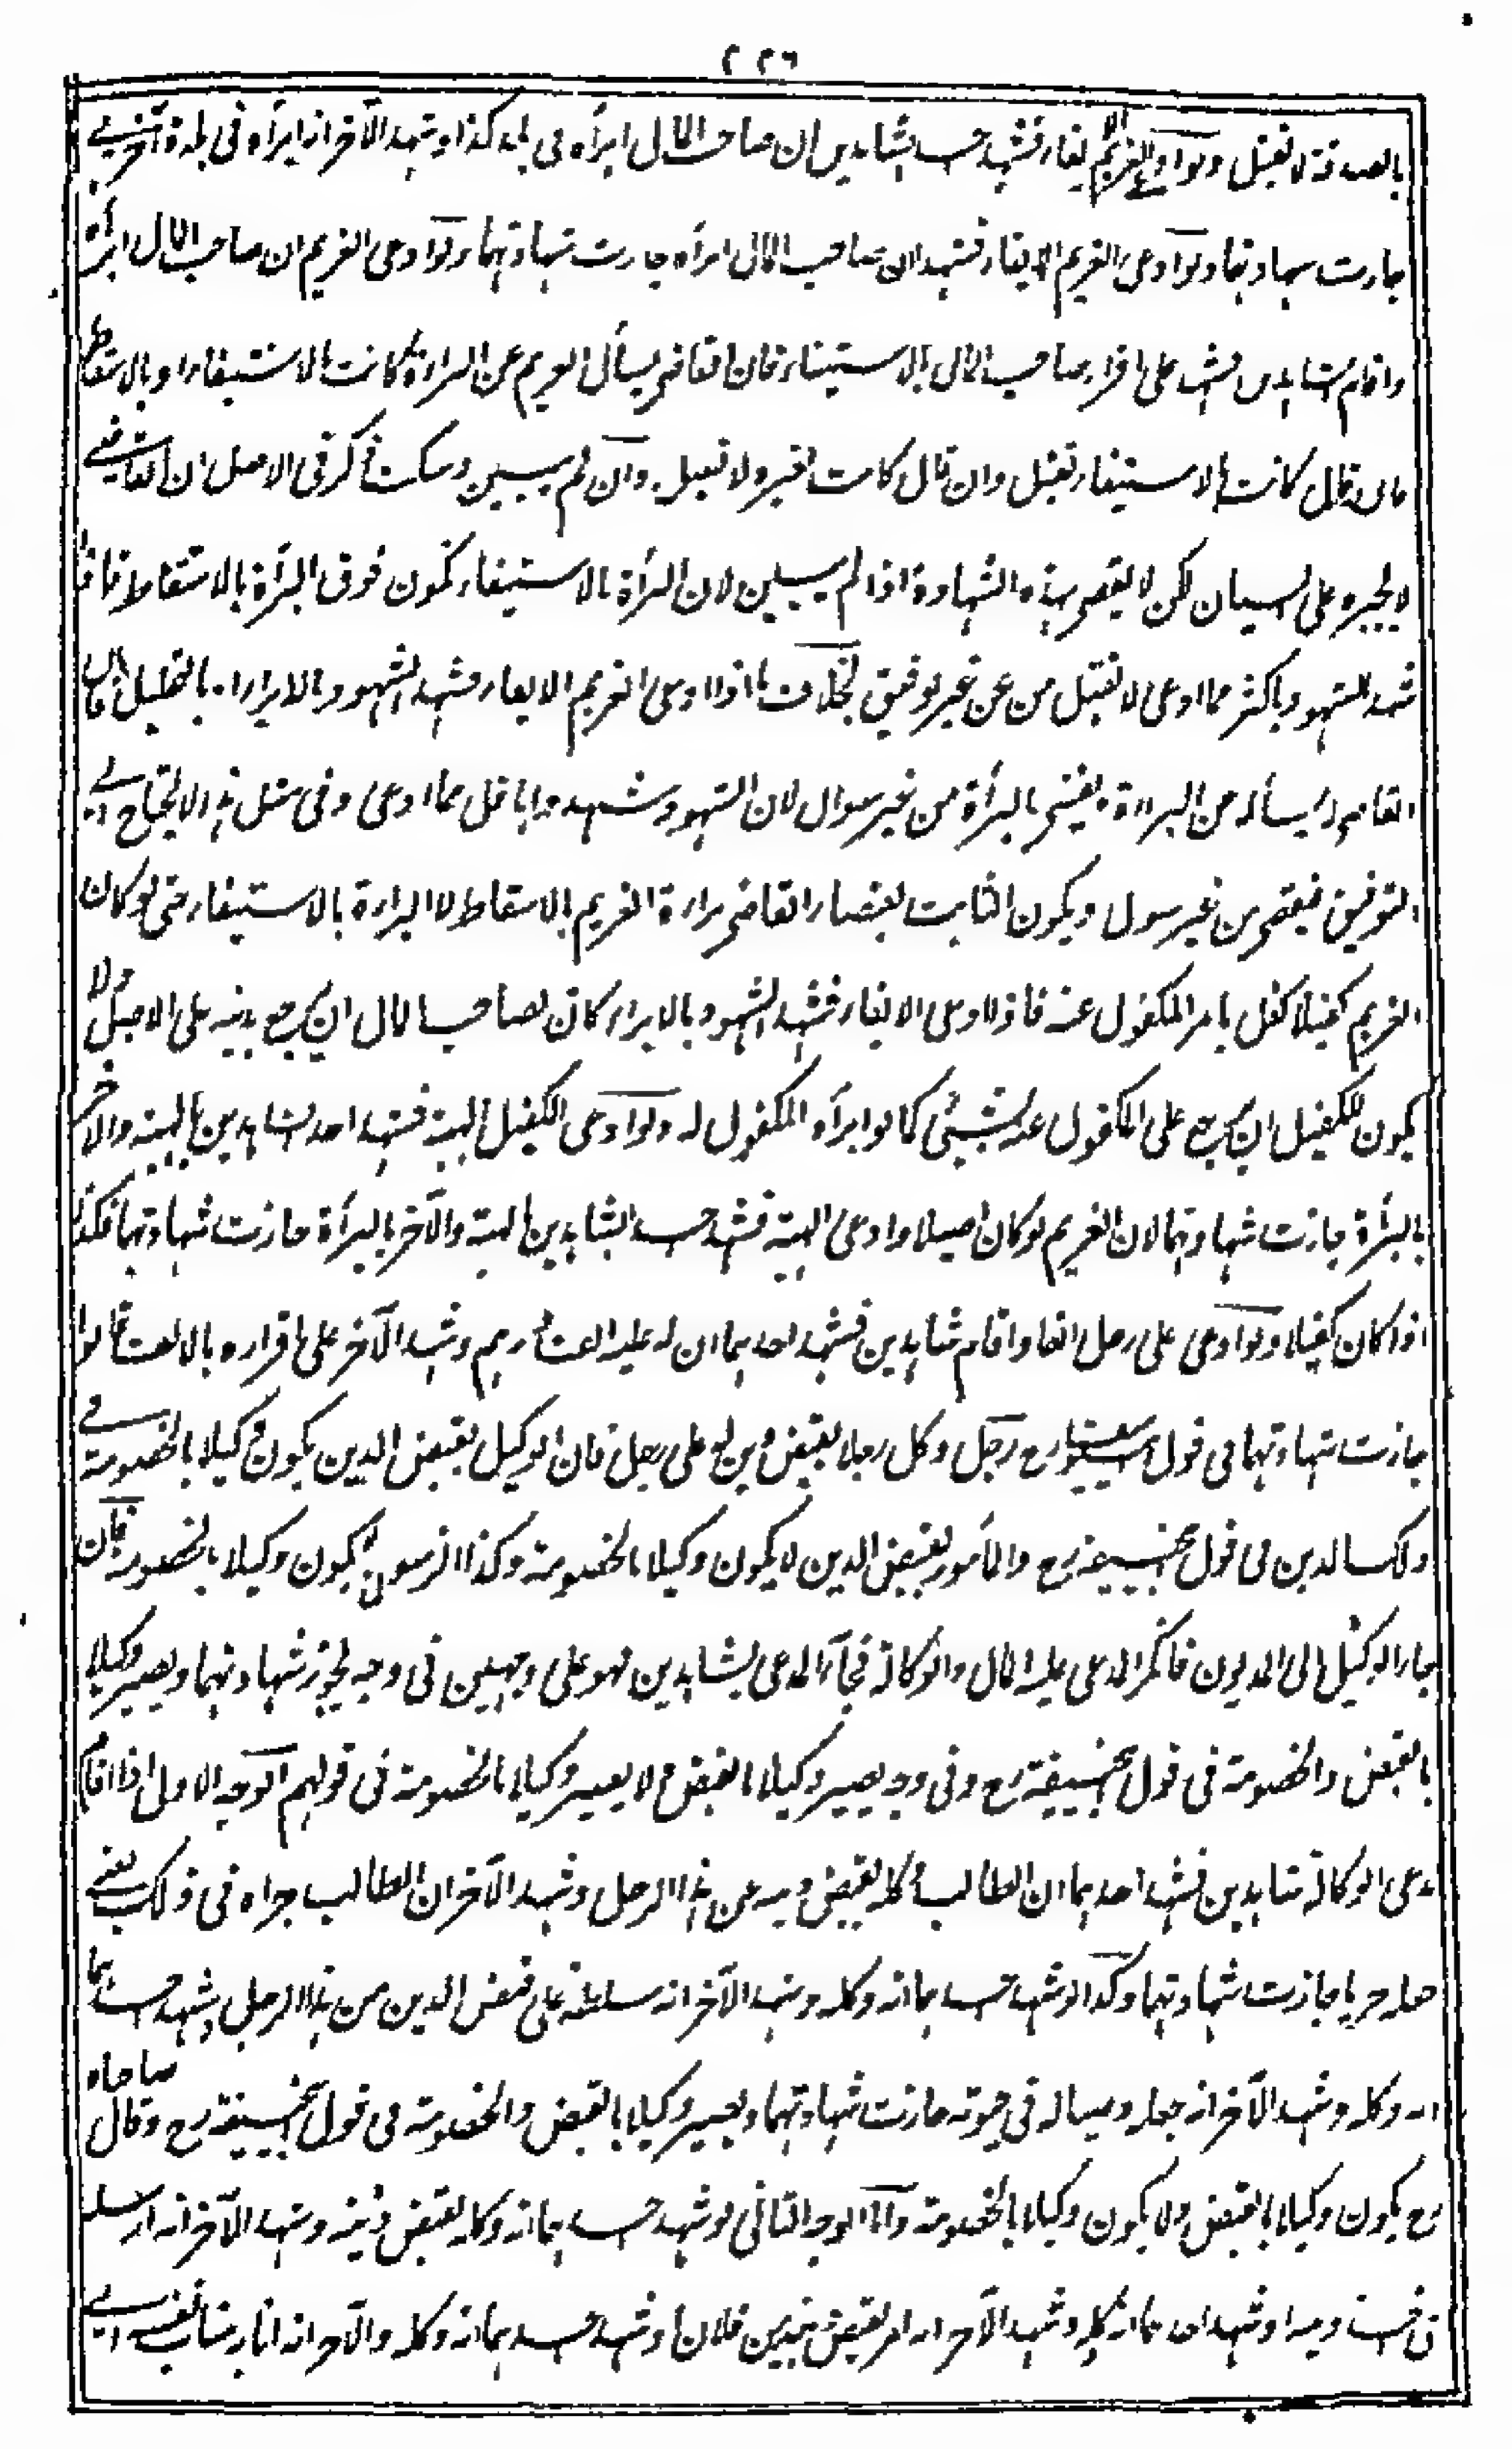 ٢٢٦
بالصدقة لا تقبل ولو ادعى الغريم الايفاء فشهد احد الشاهدين ان صاحب المال ابرأه في بلد كذا وشهد الآخر انه ابرأه في بلدة اخرى
جازت شهادتهما ولو ادعى الغريم الايفاء فشهدا ان صاحب المال ابرأه جازت شهادتهما ولو ادعى الغريم ان صاحب المال ابرأه
واقام شاهدين فشهدا على اقرار صاحب المال بالاستيفاء فان القاضي يسأل الغريم عن البراءة كانت بالاستيفاء او بالاسقاط
فان قال كانت بالاستيفاء تقبل وان قال كانت بغيره لا تقبل وان لم يبين وسكت ذكر في الاصل ان القاضي
لا يجبره على البيان لكن لا يقضي بهذه الشهادة اذا لم يبين لان البرأة بالاستيفاء تكون فوق البرأة بالاسقاط فاذا
شهد الشهود باكثر مما ادعى لا تقبل من غير توفيق بخلاف ما اذا ادعى الغريم الايفاء فشهد الشهود بالابراء او بالتحليل فان
القاضي لا يسأله عن البراءة ويقضي بالبرأة من غير سوال لان الشهود شهدوا باقل مما ادعى وفي مثل هذا لا يحتاج الى
التوفيق فيقضي من غير سوال ويكون الثابت بقضاء القاضي براءة الغريم بالاسقاط لا البراءة بالاستيفاء حتى لو كان
الغريم كفيلا كفل بامر المكفول عنه فاذا ادعى الايفاء فشهد الشهود بالابراء كان لصاحب المال ان يرجع بدينه على الاصيل ولا
يكون للكفيل ان يرجع على المكفول عنه بشيئ كما لو ابرأه المكفول له ولو ادعى الكفيل الهبة فشهد احد الشاهدين بالهبة والآخر
بالبرأة جازت شهادتهما لان الغريم لو كان اصيلا وادعى الهبة فشهد احد الشاهدين بالهبة والآخر بالبرأة جازت شهادتهما فكذا
اذا كان كفيلا ولو ادعى على رجل الفا واقام شاهدين فشهد احدهما ان له عليه الف درهم وشهد الآخر على اقراره بالالف قالوا
جازت شهادتهما في قول ابي يوسف رح رجل وكل رجلا بقبض دين له على رجل فان الوكيل بقبض الدين يكون وكيلا بالخصومة في
ذلك الدين في قول ابي حنيفة رح والمأمور بقبض الدين لا يكون وكيلا بالخصومة وكذا الرسول لا يكون وكيلا بالخصومة فان
جاء الوكيل الى المديون فانكر المدعى عليه المال والوكالة فجاء المدعي بشاهدين فهو على وجهين في وجه تجوز شهادتهما ويصير وكيلا
بالقبض والخصومة في قول ابي حنيفة رح وفي وجه يصير وكيلا بالقبض ولا يصير وكيلا بالخصومة في قولهم الوجه الاول اذا اقام
مدعي الوكالة شاهدين فشهد احدهما ان الطالب وكله بقبض دينه من هذا الرجل وشهد الآخر ان الطالب جراه في ذلك يعني
جعله جريا جازت شهادتهما وكذا لو شهد احدهما انه وكله وشهد الآخر انه سلطه على قبض الدين من هذا الرجل وشهد احدهما
انه وكله وشهد الآخر انه جعله وصيا له في حيوته جازت شهادتهما ويصير وكيلا بالقبض والخصومة في قول ابي حنيفة رح وقال صاحباه
رح يكون وكيلا بالقبض ولا يكون وكيلا بالخصومة واما الوجه الثاني لو شهد احدهما انه وكله بقبض دينه وشهد الآخر انه ارسله
في اخذ دينه او شهد احدهما انه وكله وشهد الآخر انه امره بقبض دينه من فلان او شهد احدهما انه وكله والآخر انه انابه مناب نفسه في